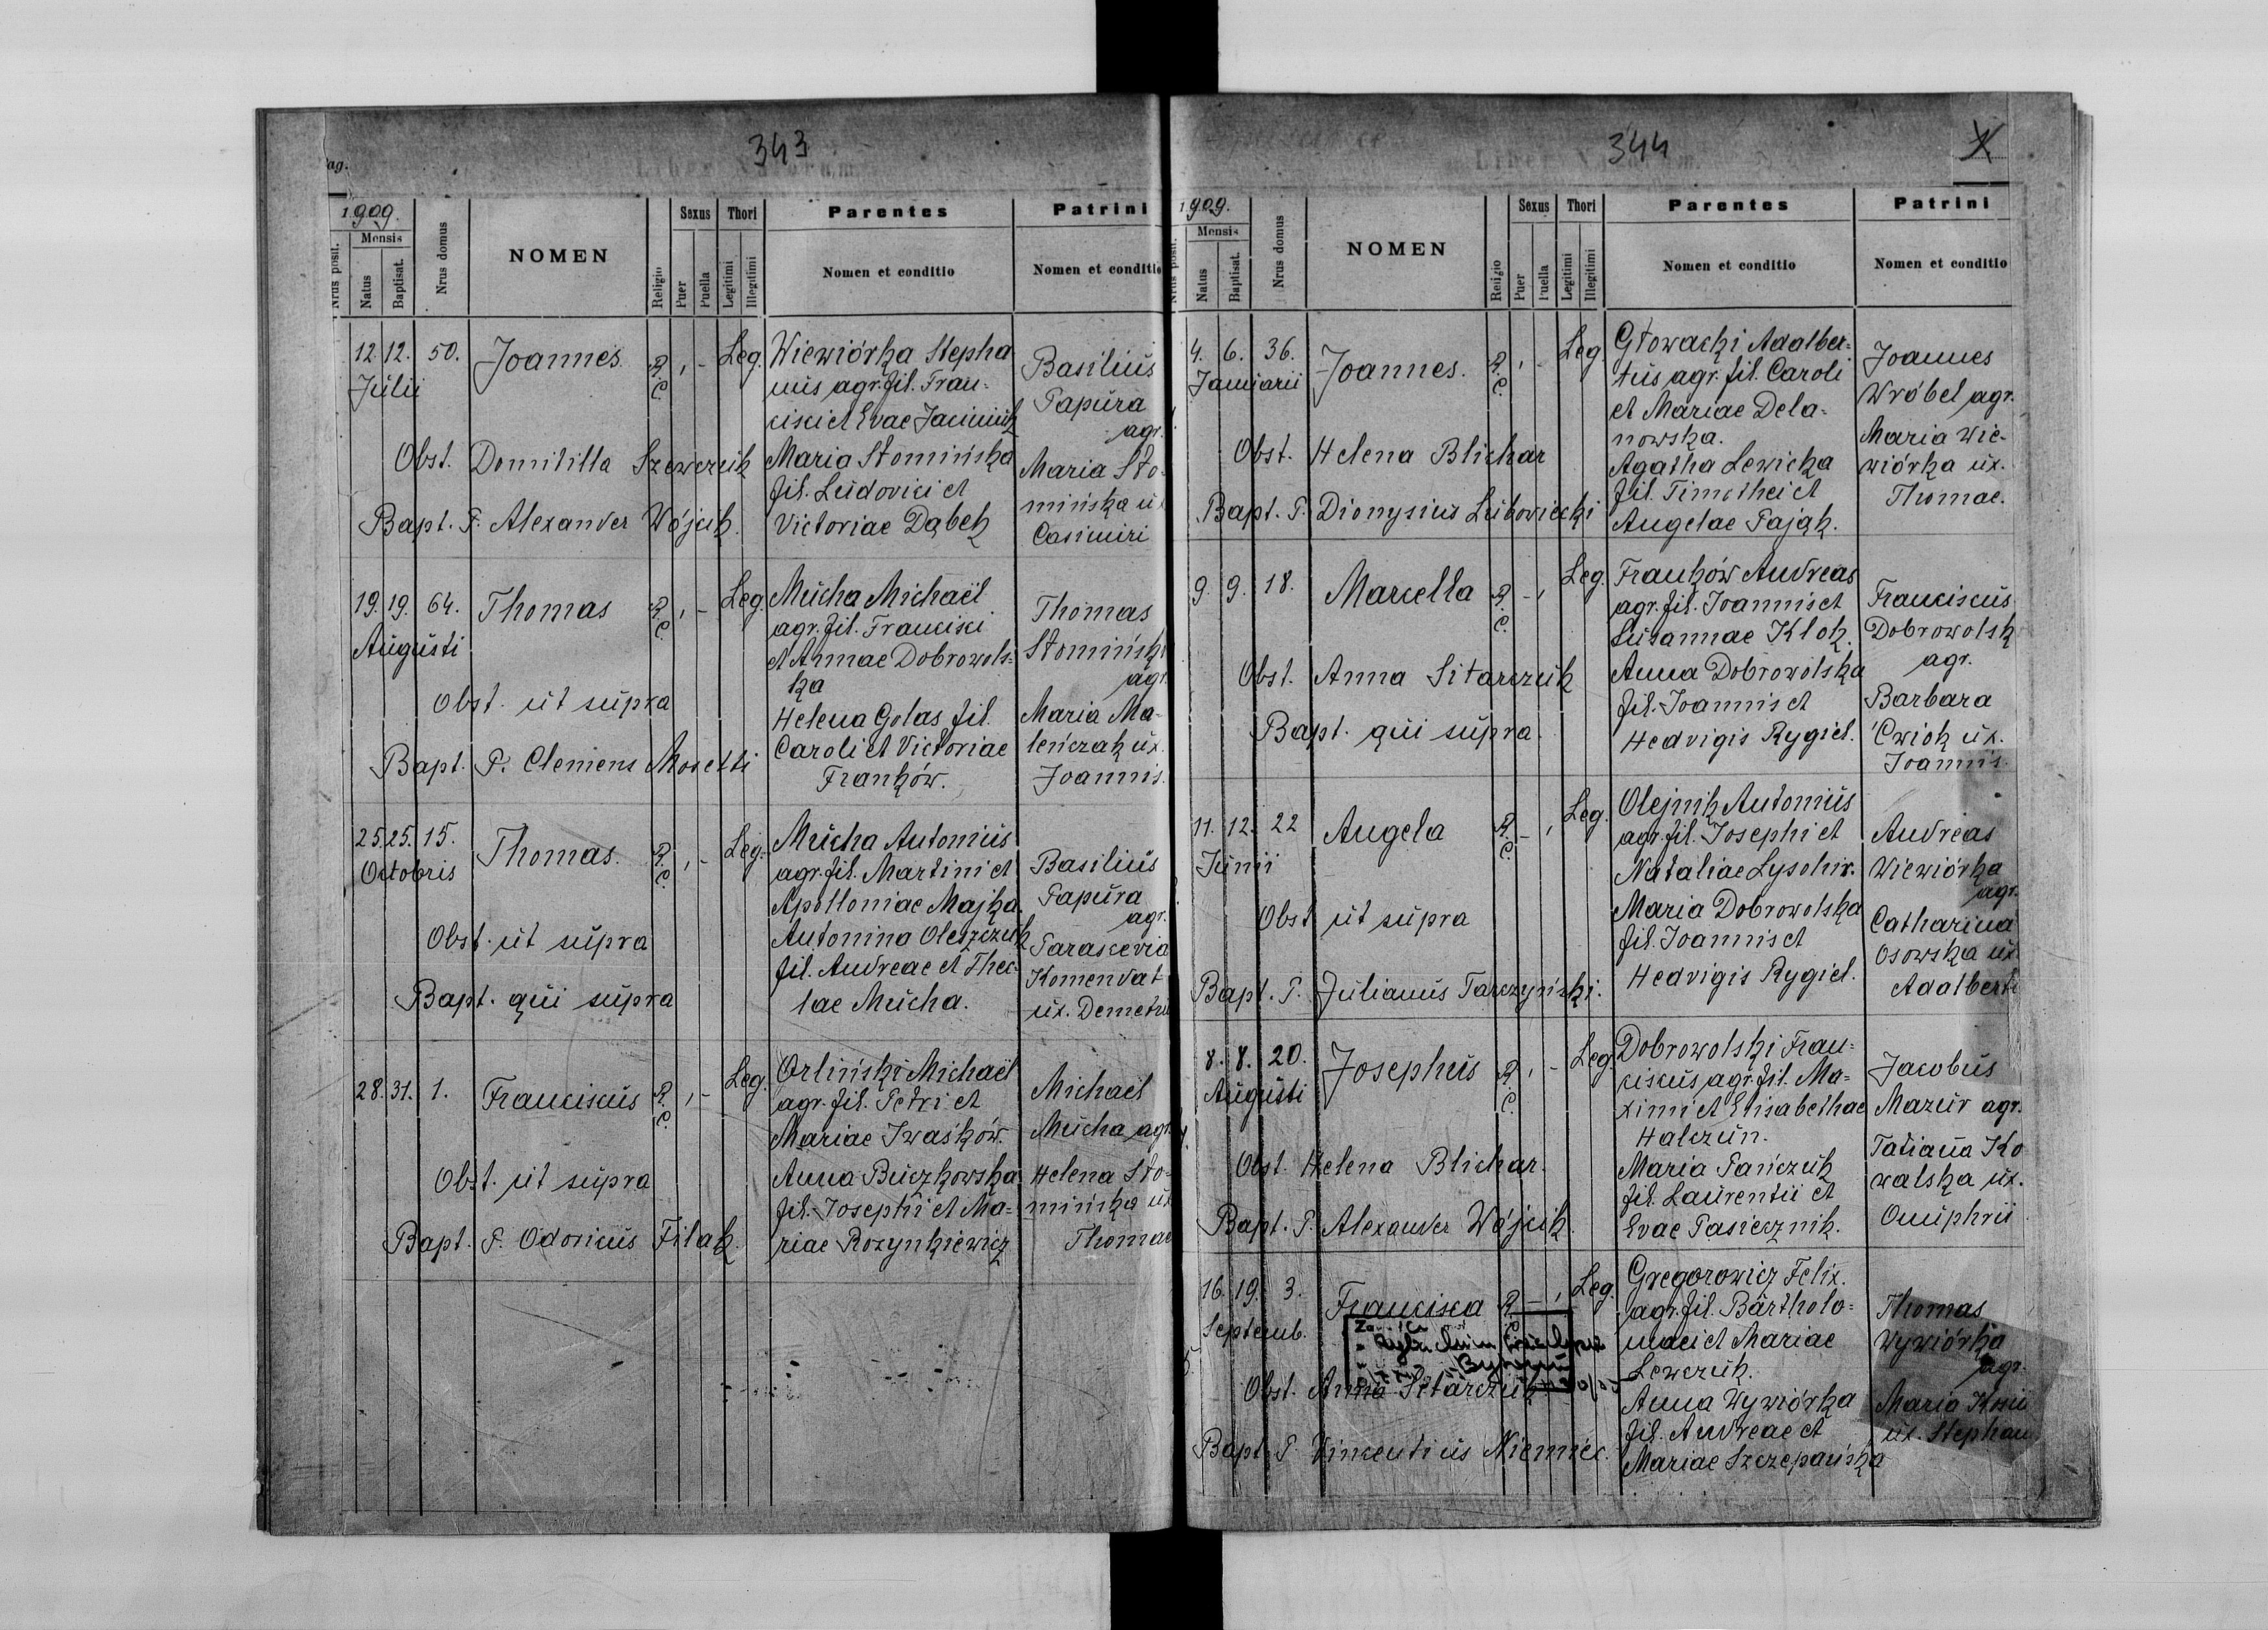 343
ag.
Liber Natorum.
1909.
Mensis
Nrus posit.
Natus
Baptisat.
Nrus domus
NOMEN
Religio
Sexus
Puer
Puella
Thori
Legitimi
Illegitimi
Parentes
Nomen et conditio
Patrini
Nomen et conditio
12. 12. 50. Joannes. R. C. , - Leg.
Julii
Wiewiórka Stepha
nus agr. fil. Fran-
cisci et Evae Jacimiuk
Maria Słomińska
fil. Ludovici et
Victoriae Dąbek
Basilius
Papura
agr.
Maria Sło-
mińska ux
Casimiri
Obst. Domitilla Szewczuk
Bapt. P. Alexander Wójcik.
19. 19. 64. Thomas R. C. , - Leg.
Augusti
Mucha Michaël
agr. fil. Francisci
et Annae Dobrowols-
ka
Helena Golas fil.
Caroli et Victoriae
Franków.
Thomas
Słomiński
agr.
Maria Ma-
leńczak ux.
Joannis.
Obst. ut supra
Bapt. P. Clemens Mosetti
25. 25. 15. Thomas. R. C. , - Leg.
Octobris
Mucha Antonius
agr. fil. Martini et
Apolloniae Majka.
Antonina Oleszczuk
fil. Andreae et Thec-
lae Mucha.
Basilius
Papura
agr.
Parascevia
Komendat
ux. Demetrii
Obst. ut supra
Bapt. qui supra
28. 31. 1. Franciscus R. C. , - Leg.
Orliński Michaël
agr. fil. Petri et
Mariae Iwaśków.
Anna Buczkowska
fil. Josephi et Ma-
riae Rozynkiewicz
Michaël
Mucha agr.
Helena Sło-
mińska ux
Thomae
Obst. ut supra
Bapt. P. Odoricus Filak.
344
X
Liber Natorum.
1909.
Mensis
Nrus posit.
Natus
Baptisat.
Nrus domus
NOMEN
Religio
Sexus
Puer
Puella
Thori
Legitimi
Illegitimi
Parentes
Nomen et conditio
Patrini
Nomen et conditio
4. 6. 36. Joannes. R. C. , - Leg.
Januarii
Głowacki Adalber-
tus agr. fil. Caroli
et Mariae Dela-
nowska.
Agatha Lewicka
fil. Timothei et
Angelae Pająk.
Joannes
Wróbel agr.
Maria Wie-
wiórka ux.
Thomae.
Obst. Helena Blichar
Bapt. P. Dionysius Lubowiecki
9. 9. 18. Marcella R. C. - , Leg.
Franków Andreas
agr. fil. Joannis et
Susannae Kłok.
Anna Dobrowolska
fil. Joannis et
Hedvigis Rygiel.
Franciscus
Dobrowolsk
agr.
Barbara
Ćwiok ux.
Joannis.
Obst. Anna Sitarczuk
Bapt. qui supra.
11. 12. 22 Angela R. C. - , Leg.
Junii
Olejnik Antonius
agr. fil. Josephi et
Nataliae Lysohir.
Maria Dobrowolska
fil. Joannis et
Hedvigis Rygiel.
Andreas
Wiewiórka
agr.
Catharina
Osowska ux.
Adalberti
Obst. ut supra
Bapt. P. Julianus Tarczyński.
8. 8. 20. Josephus R. C. , - Leg.
Augusti
Dobrowolski Fran-
ciscus agr. fil. Ma-
ximi et Elisabethae
Halczun.
Maria Pańczuk
fil. Laurentii et
Evae Pasiecznik.
Jacobus
Mazur agr.
Tatiana Ko
walska ux.
Onuphrii
Obst. Helena Blichar.
Bapt. P. Alexander Wójcik.
16. 19. 3. Francisca R. C. - , Leg.
Septemb.
Gregorowicz Felix.
agr. fil. Bartholo-
maei et Mariae
Lewczuk.
Anna Wywiórka
fil. Andreae et
Mariae Szczepańska
Thomas
Wywiórka
agr.
Maria
ux. Stephan
Obst. Anna Sitarczuk
Bapt. P. Vincentius Niemiec.